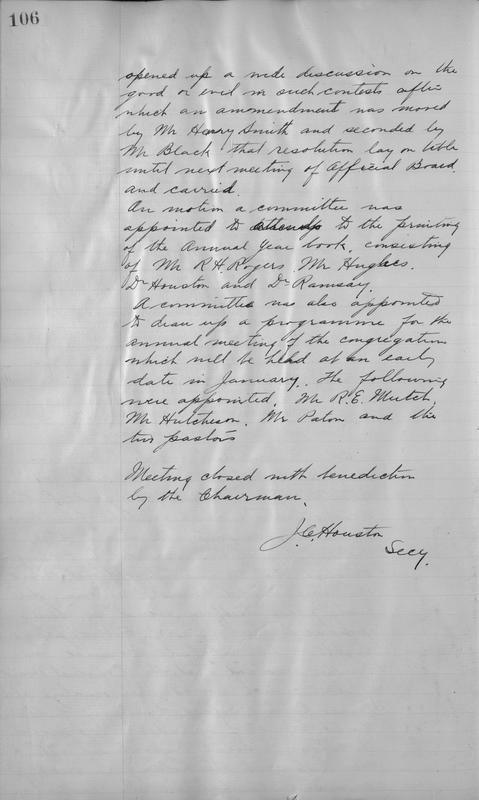 106
opened up a wide discussion on the
good or evil in such contests after
which an amomendment was moved
by Mr Harry Smith and seconded by
Mr Black that resolution lay on table
until next meeting of Official Board.
and carried.
On motion a committee was
appointed to attend to the printing
of the Annual Year book, consisting
of Mr R.H. Rogers, Mr Hughes.
Dr Houston and Dr Ramsay.
A committee was also appointed
to draw up a programme for the
annual meeting of the congregation
which will be held at an early
date in January. The following
were appointed, Mr R.E. Mutch,
Mr Hutcheson, Mr Paton and the
two pastors
Meeting closed with benediction
by the Chairman.
J.C. Houston
Secy.